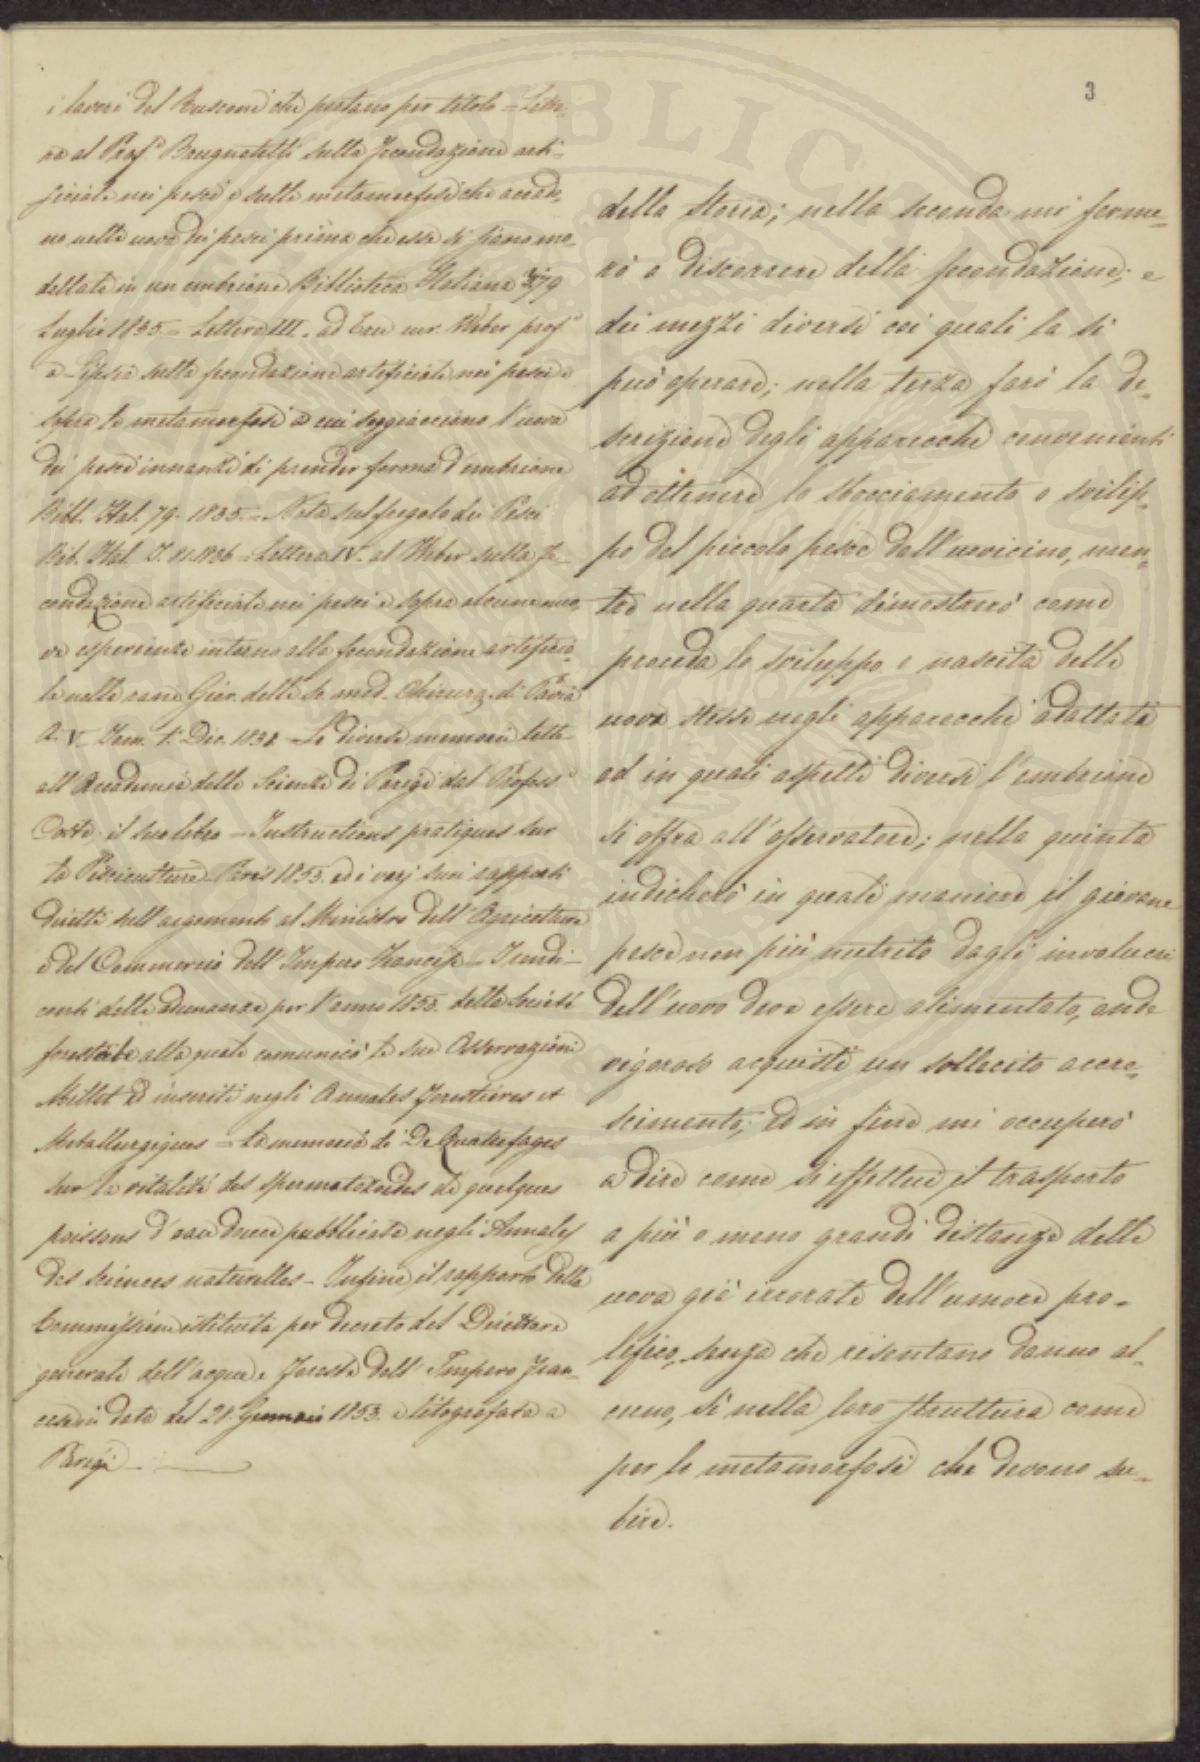 3
i lavori del Rusconi che portano per titolo = Lette-
ra al Prof.e Brugnatelli sulla fecondazione arti-
ficiale nei pesci e sulle metamorfosi che accado-
no nelle uova dei pesci prima che esse si siano mo-
dellate in un embrione Biblioteca Italiana 79
Luglio 1835 = Lettera III. ad Ern mr. Weber prof.e
a Lipsia sulla fecondazione artificiale nei pesci e
sopra le metamorfosi a cui soggiacciono l'uova
dei pesci innanzi di prender forma d'embrione
Bibl. Ital. 79. 1835 = Nota sul fregolo dei Pesci
Bib. Ital. T. 1836 = Lettera IV. al Weber sulla fe-
condazione artificiale nei pesci e sopra alcune nuo-
ve esperienze intorno alla fecondazione artificia-
le nelle rane Gior. delle Sc. med. Chirurg. di Pavia
A. V. Tom. Dec. 1838 = Le diverse memorie lette
all'Accademia delle Scienze di Parigi dal Profess.e
Coste, il suo libro = Instructions pratiques sur
la Pisciculture Paris 1853. ed i varj suoi rapporti
diretti sull'argomento al Ministro dell'Agricoltura
e del Commercio dell'Impero Francese = I rendi-
conti delle adunanze per l'anno 1853. della Società
forestale alla quale comunicò le sue Osservazioni
Millet ed inseriti negli Annales Forestières et
Metallurgiques = la memoria di De Quatrefages
sur la vitalité des spermatozoides de quelques
poissons d'eau douce pubblicata negli Annales
des sciences naturelles = Infine il rapporto della
Commissione istituita per decreto del Direttore
generale dell'acque e foreste dell'Impero Fran-
cese in data del 28. Gennaio 1853. e litografata a
Parigi.
della Storia; nella seconda mi ferme-
rò a discorrere della fecondazione; e
dei mezzi diversi coi quali la si
può operare; nella terza farò la de-
scrizione degli apparecchi convenienti
ad ottenere lo sbocciamento e svilup-
po del piccolo pesce dall'uovicino, men-
tre nella quarta dimostrerò come
proceda lo sviluppo e nascita delle
uova stesse negli apparecchi adattati
ed in quali aspetti diversi l'embrione
si offra all'osservatore; nella quinta
indicherò in quali maniere il giovane
pesce non più nutrito dagli involucri
dell'uovo deve essere alimentato, onde
vigoroso acquisti un sollecito accre-
scimento; ed in fine mi occuperò
a dire come si effettui il trasporto
a più o meno grandi distanze delle
uova già irrorate dell'umore pro-
lifico, senza che risentano danno al-
cuno, sì nella loro struttura come
per le metamorfosi che devono su-
bire.